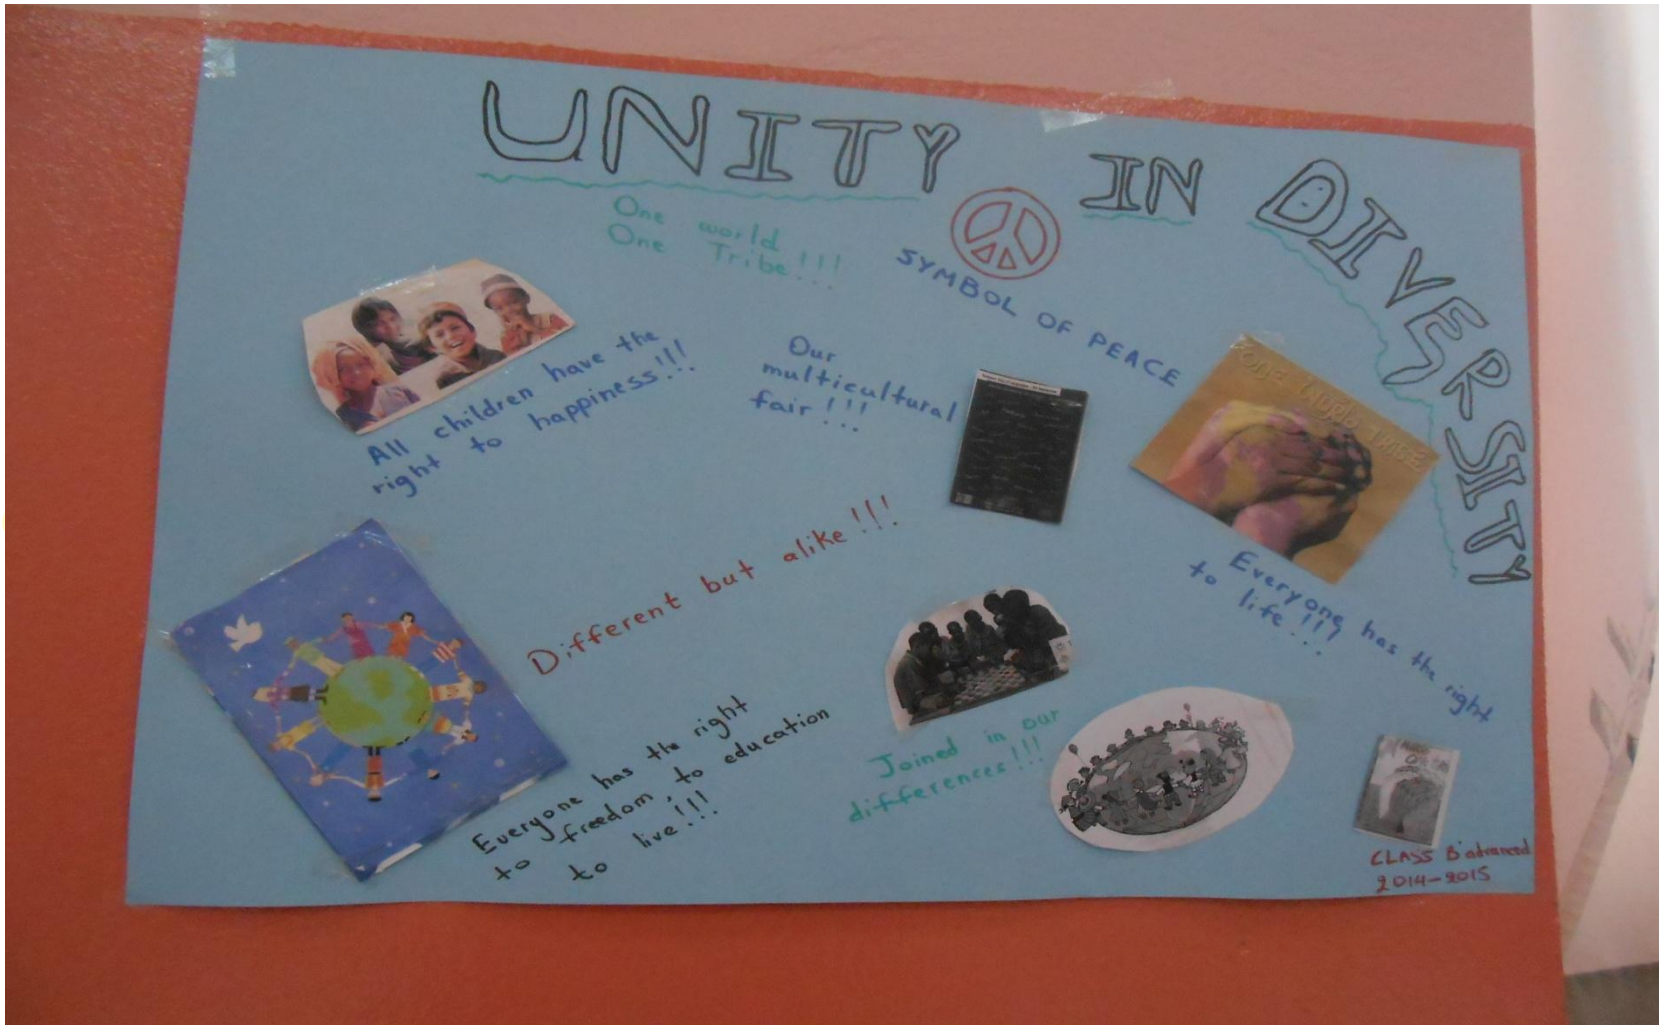 UNITY IN DIVERSITY
One world
One Tribe!!!
SYMBOL OF PEACE
All children have the
right to happiness!!!
Our
multicultural
fair!!!
ONE WORLD TRIBE
Different but alike!!!
Everyone has the right
to life!!!
Everyone has the right
to freedom, to education
to live!!!
Joined in our
differences!!!
CLASS B'advanced
2014-2015